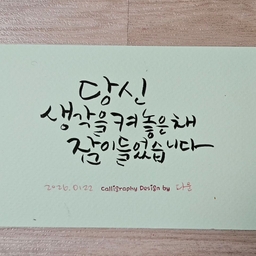 당신
생각을 켜놓은채
잠이들었습니다
2026. 01. 22 Calligraphy Design by 다온